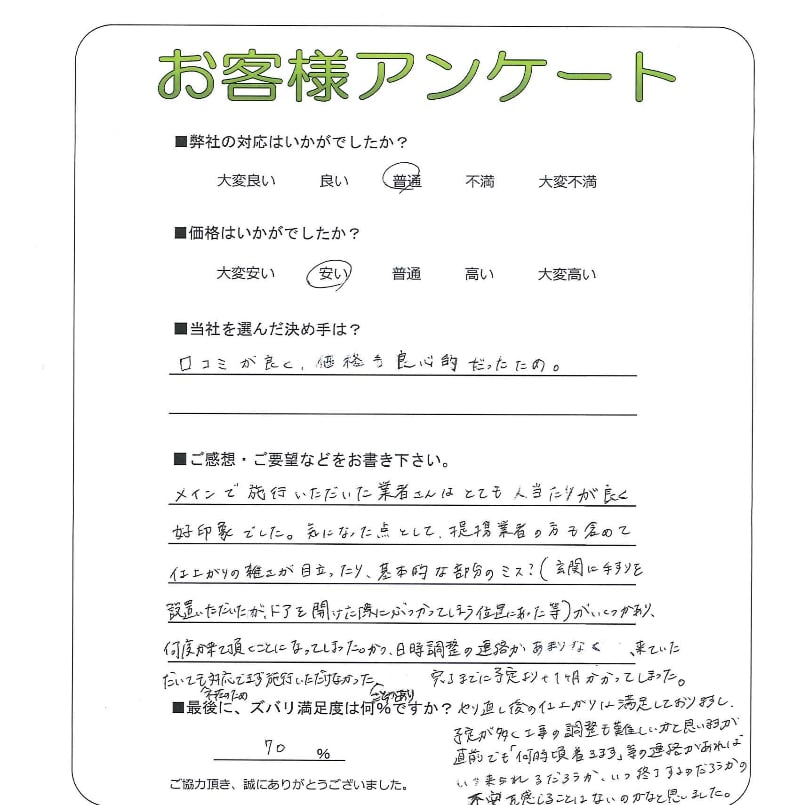 お客様アンケート
■弊社の対応はいかがでしたか？
大変良い 良い 普通 不満 大変不満
■価格はいかがでしたか？
大変安い 安い 普通 高い 大変高い
■当社を選んだ決め手は？
口コミが良く、価格も良心的だったため。
■ご感想・ご要望などをお書き下さい。
メインで施行いただいた業者さんはとても人当たりが良く
好印象でした。気になった点として、提携業者の方も含めて
仕上がりの雑さが目立ったり、基本的な部分のミス？(玄関に手すりを
設置いただいたが、ドアを開けた際にぶつかってしまう位置にあった等)がいくつかあり、
何度か来て頂くことになってしまった。かつ、日時調整の連絡があまりなく、来ていた
だいても対応できず施行いただけなかった 完了までに予定より+1ヶ月かかってしまった。
不在のため ことのあり
■最後に、ズバリ満足度は何％ですか？
70 %
やり直し後の仕上がりは満足しておりますし、
予定が多く工事の調整も難しい方と思いますが
直前でも「何時頃着きます」等の連絡があれば
いつ来られるだろうか、いつ終了するのだろうかの
不安を感じることはないのかなと思いました。
ご協力頂き、誠にありがとうございました。